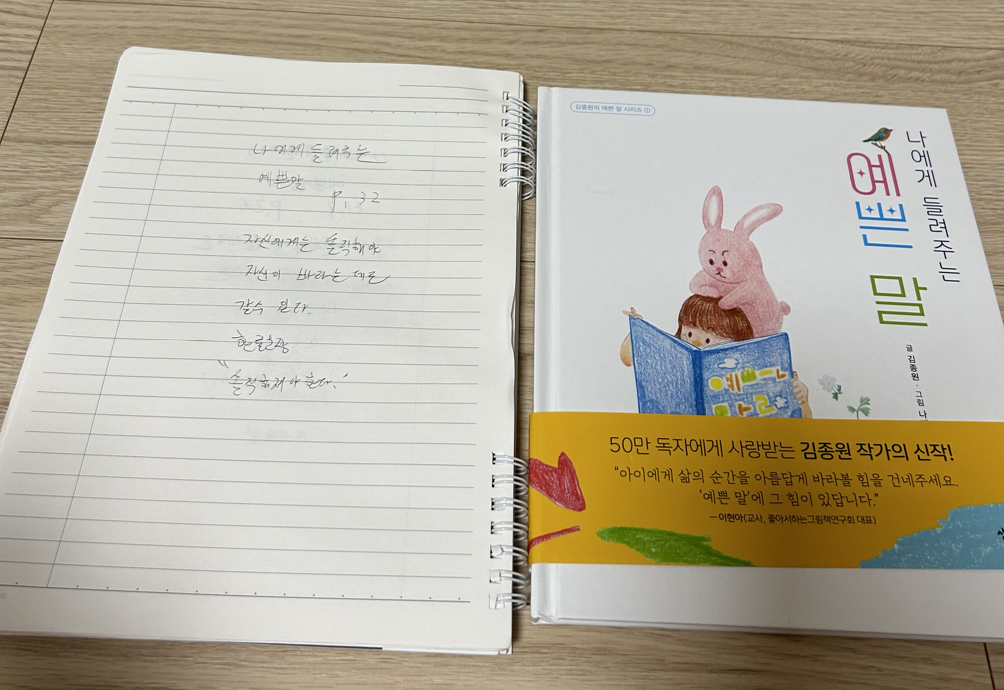 나에게 들려주는
예쁜말
p. 32
자신에게는 솔직해야
자신이 바라는 데로
갈수 있다.
한줄문장
"솔직해져야 한다."
김종원의 예쁜 말 시리즈 ①
나에게 들려주는
예쁜 말
글 김종원 · 그림 나
예쁘—ㄴ
50만 독자에게 사랑받는 김종원 작가의 신작!
"아이에게 삶의 순간을 아름답게 바라볼 힘을 건네주세요.
'예쁜 말'에 그 힘이 있답니다."
—이현아(교사, 좋아서하는그림책연구회 대표)